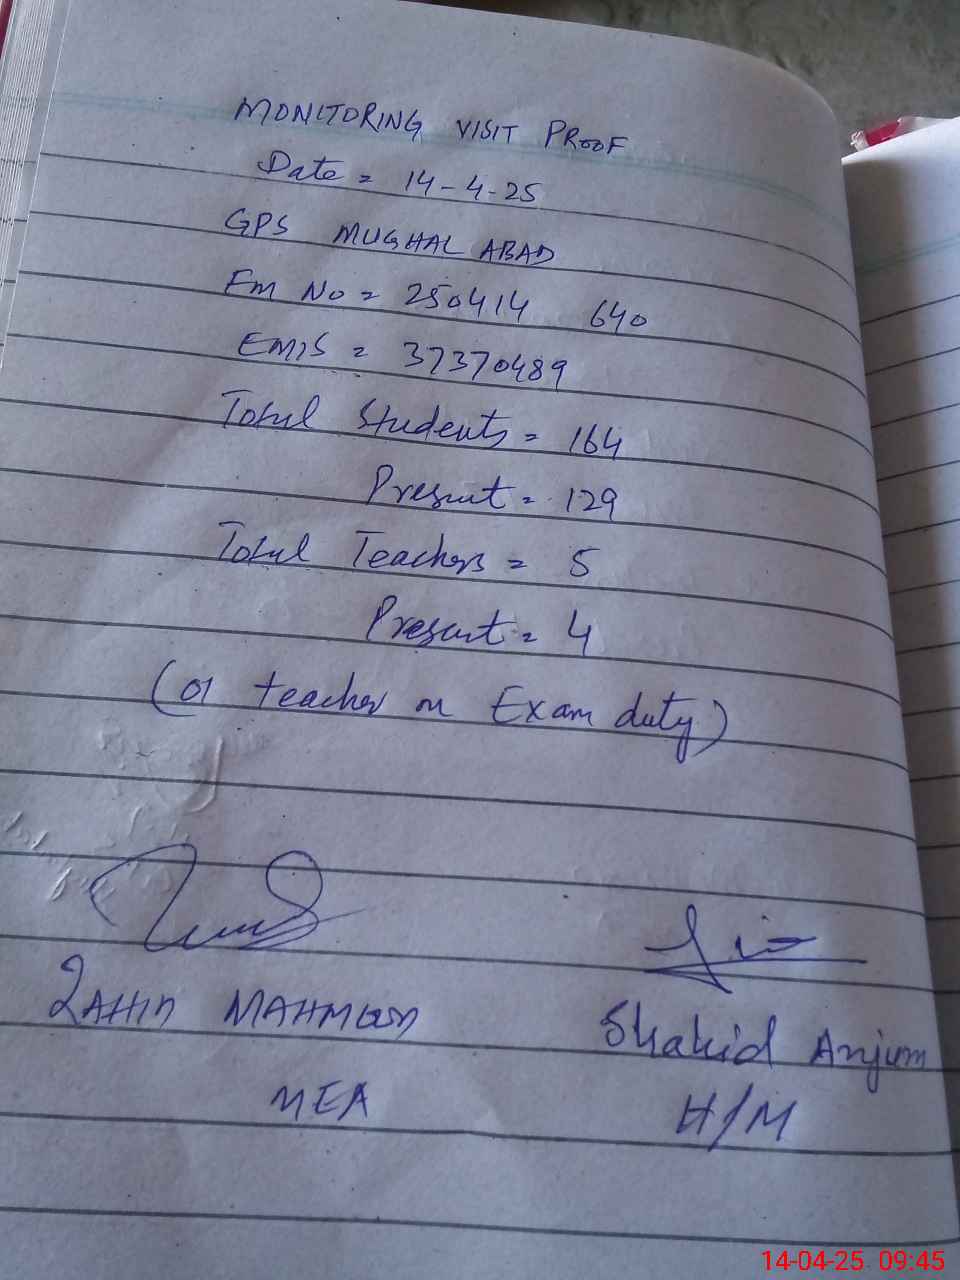 MONITORING VISIT PROOF
Date = 14-4-25
GPS MUGHAL ABAD
Em No = 250414 640
EMIS = 37370489
Total Students = 164
Present = 129
Total Teachers = 5
Present = 4
(01 teacher on Exam duty)
ZAHID MAHMOOD
Shahid Anjum
MEA
H/M
14-04-25 09:45